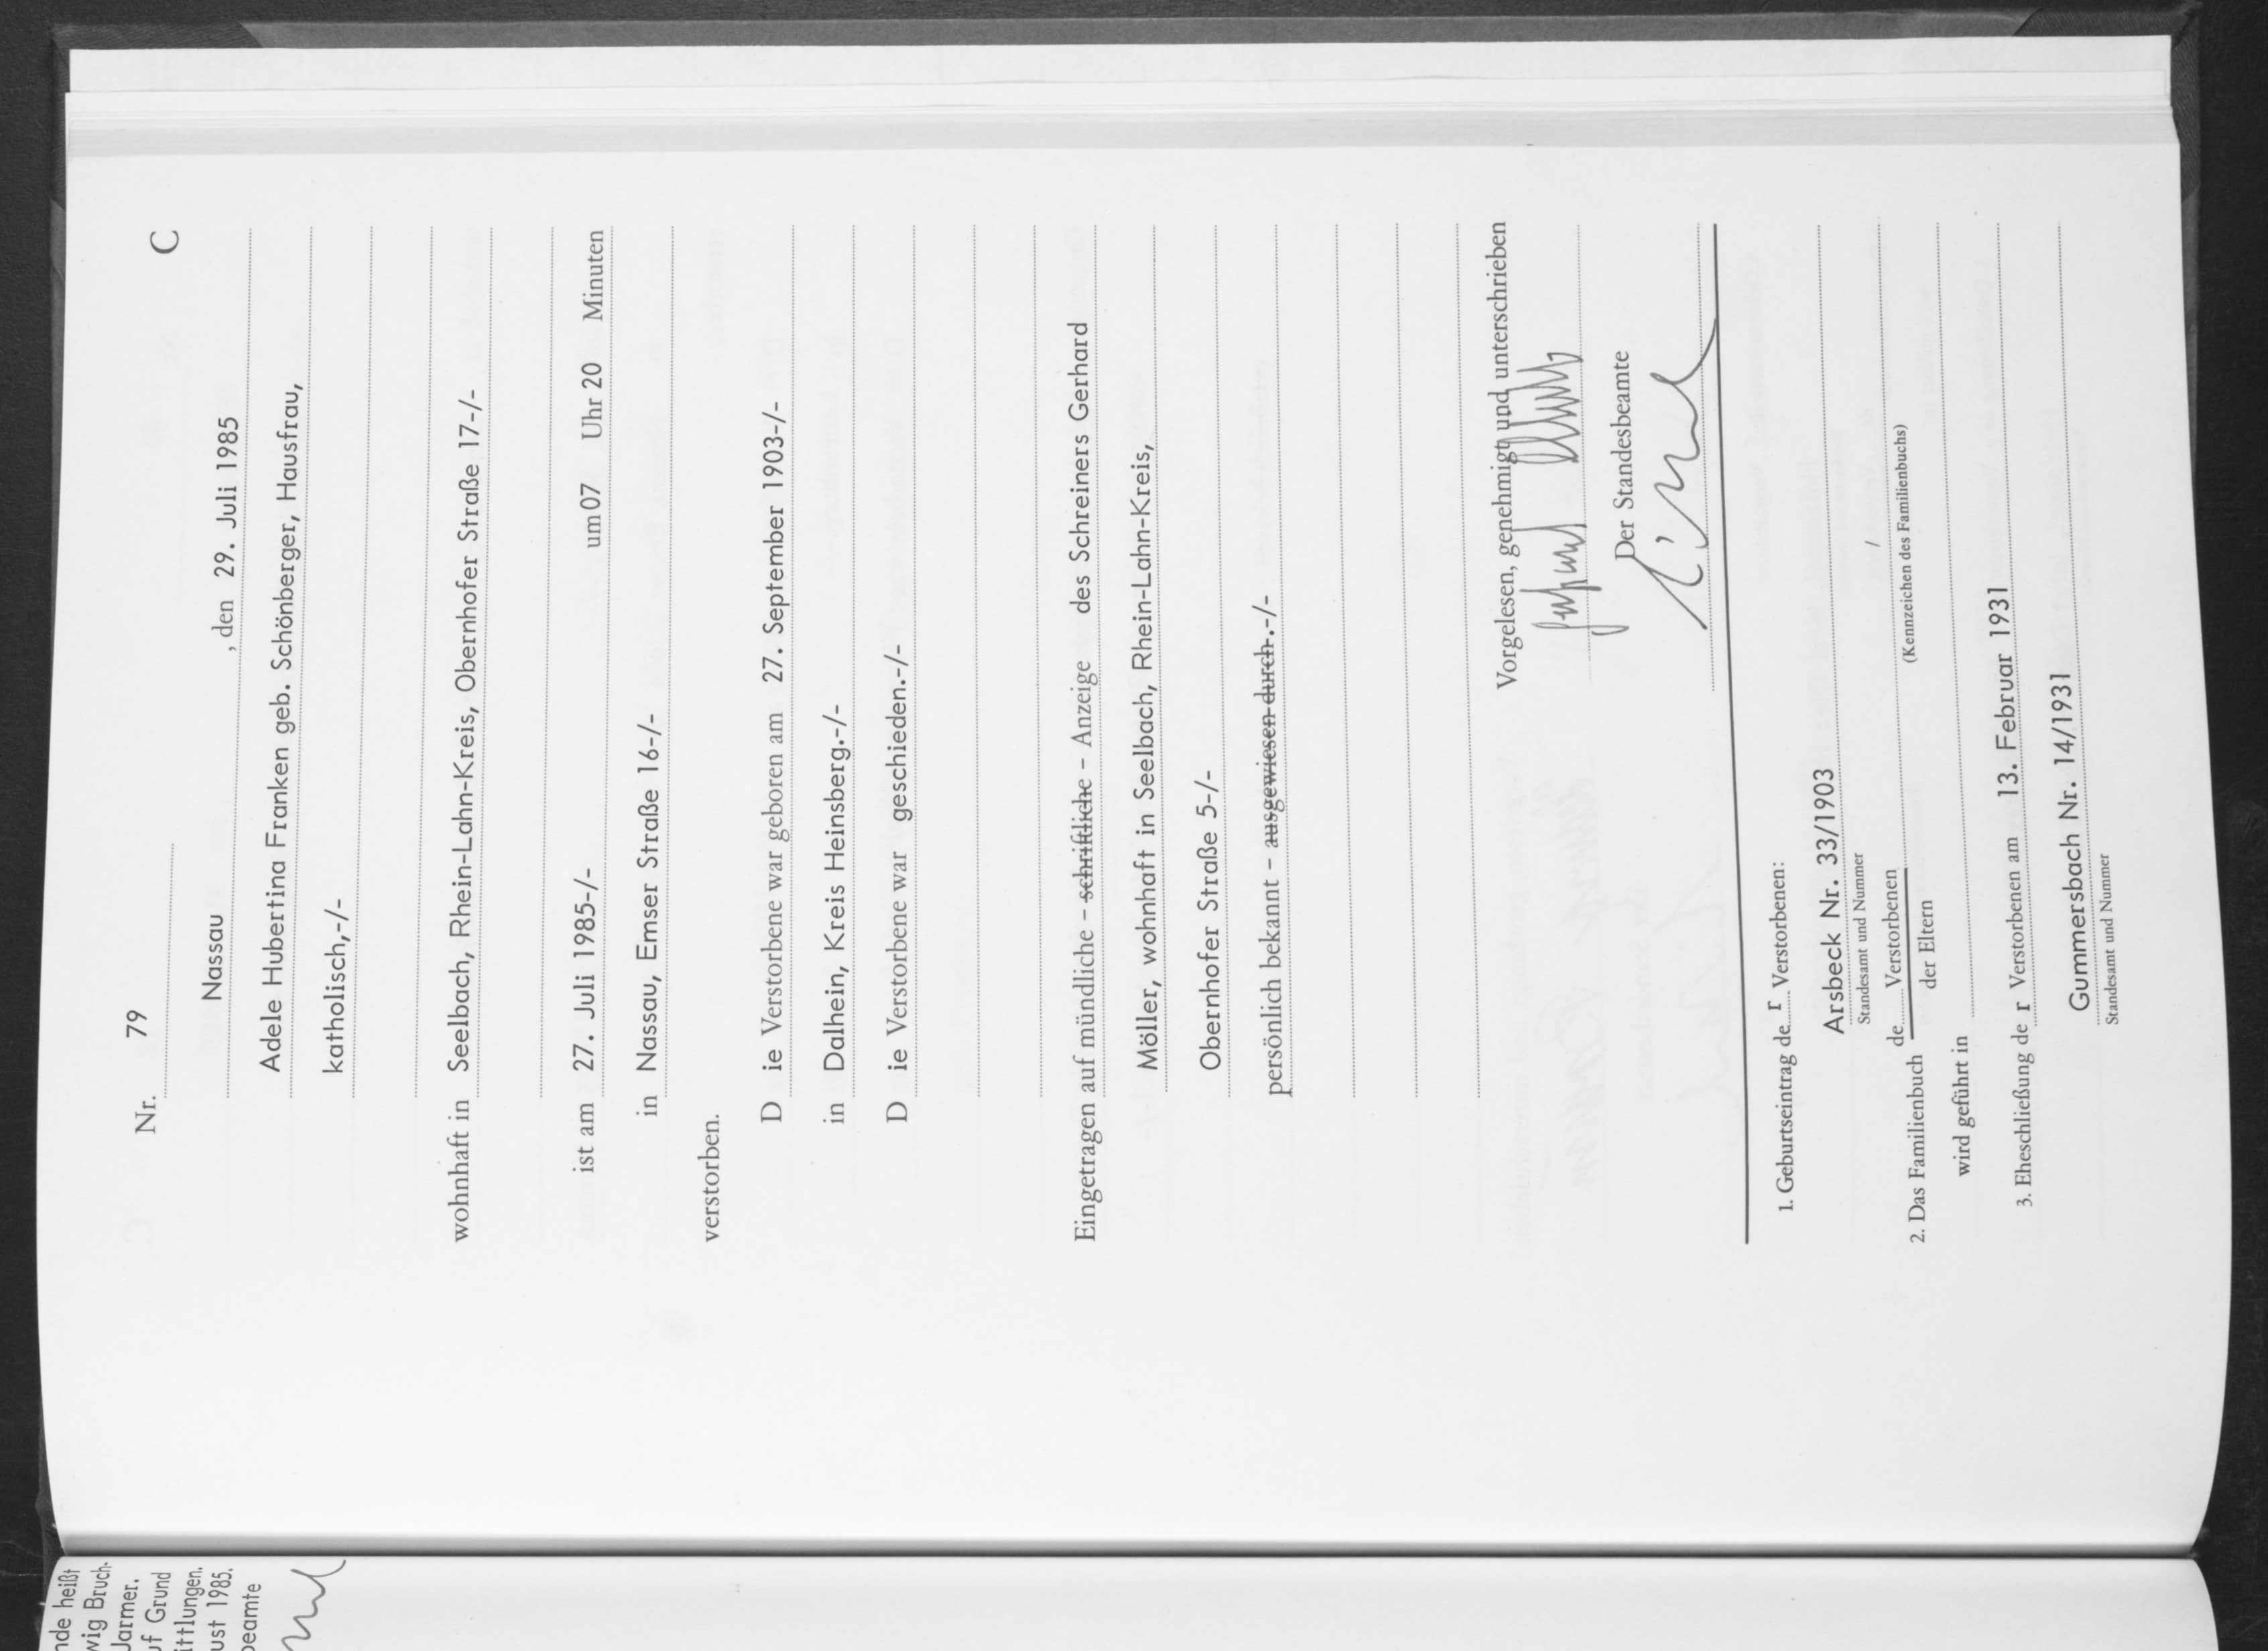 Nr. 79
C
Nassau, den 29. Juli 1985
Adele Hubertina Franken geb. Schönberger, Hausfrau,
katholisch,-/-
wohnhaft in Seelbach, Rhein-Lahn-Kreis, Obernhofer Straße 17-/-
ist am 27. Juli 1985-/- um 07 Uhr 20 Minuten
in Nassau, Emser Straße 16-/-
verstorben.
D ie Verstorbene war geboren am 27. September 1903-/-
in Dalhein, Kreis Heinsberg.-/-
D ie Verstorbene war geschieden.-/-
Eingetragen auf mündliche – schriftliche – Anzeige des Schreiners Gerhard
Möller, wohnhaft in Seelbach, Rhein-Lahn-Kreis,
Obernhofer Straße 5-/-
persönlich bekannt – ausgewiesen durch.-/-
Vorgelesen, genehmigt und unterschrieben
Der Standesbeamte
1. Geburtseintrag de r Verstorbenen:
Arsbeck Nr. 33/1903
Standesamt und Nummer
2. Das Familienbuch de Verstorbenen /
der Eltern
(Kennzeichen des Familienbuchs)
wird geführt in
3. Eheschließung de r Verstorbenen am 13. Februar 1931
Gummersbach Nr. 14/1931
Standesamt und Nummer
nde heißt
wig Bruch-
Jarmer.
uf Grund
ittlungen.
ust 1985.
beamte